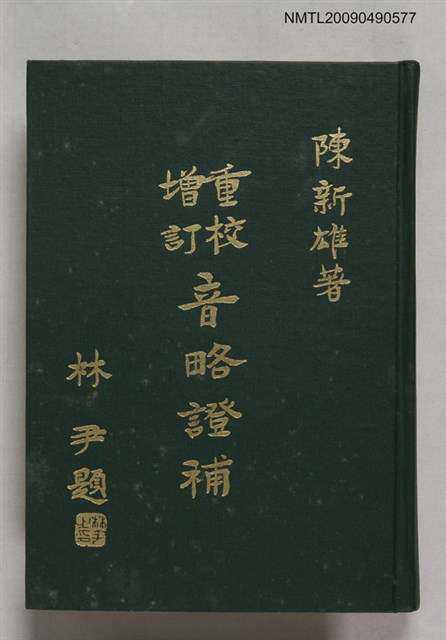 NMTL20090490577
陳新雄著
重校
增訂
音略證補
林尹題